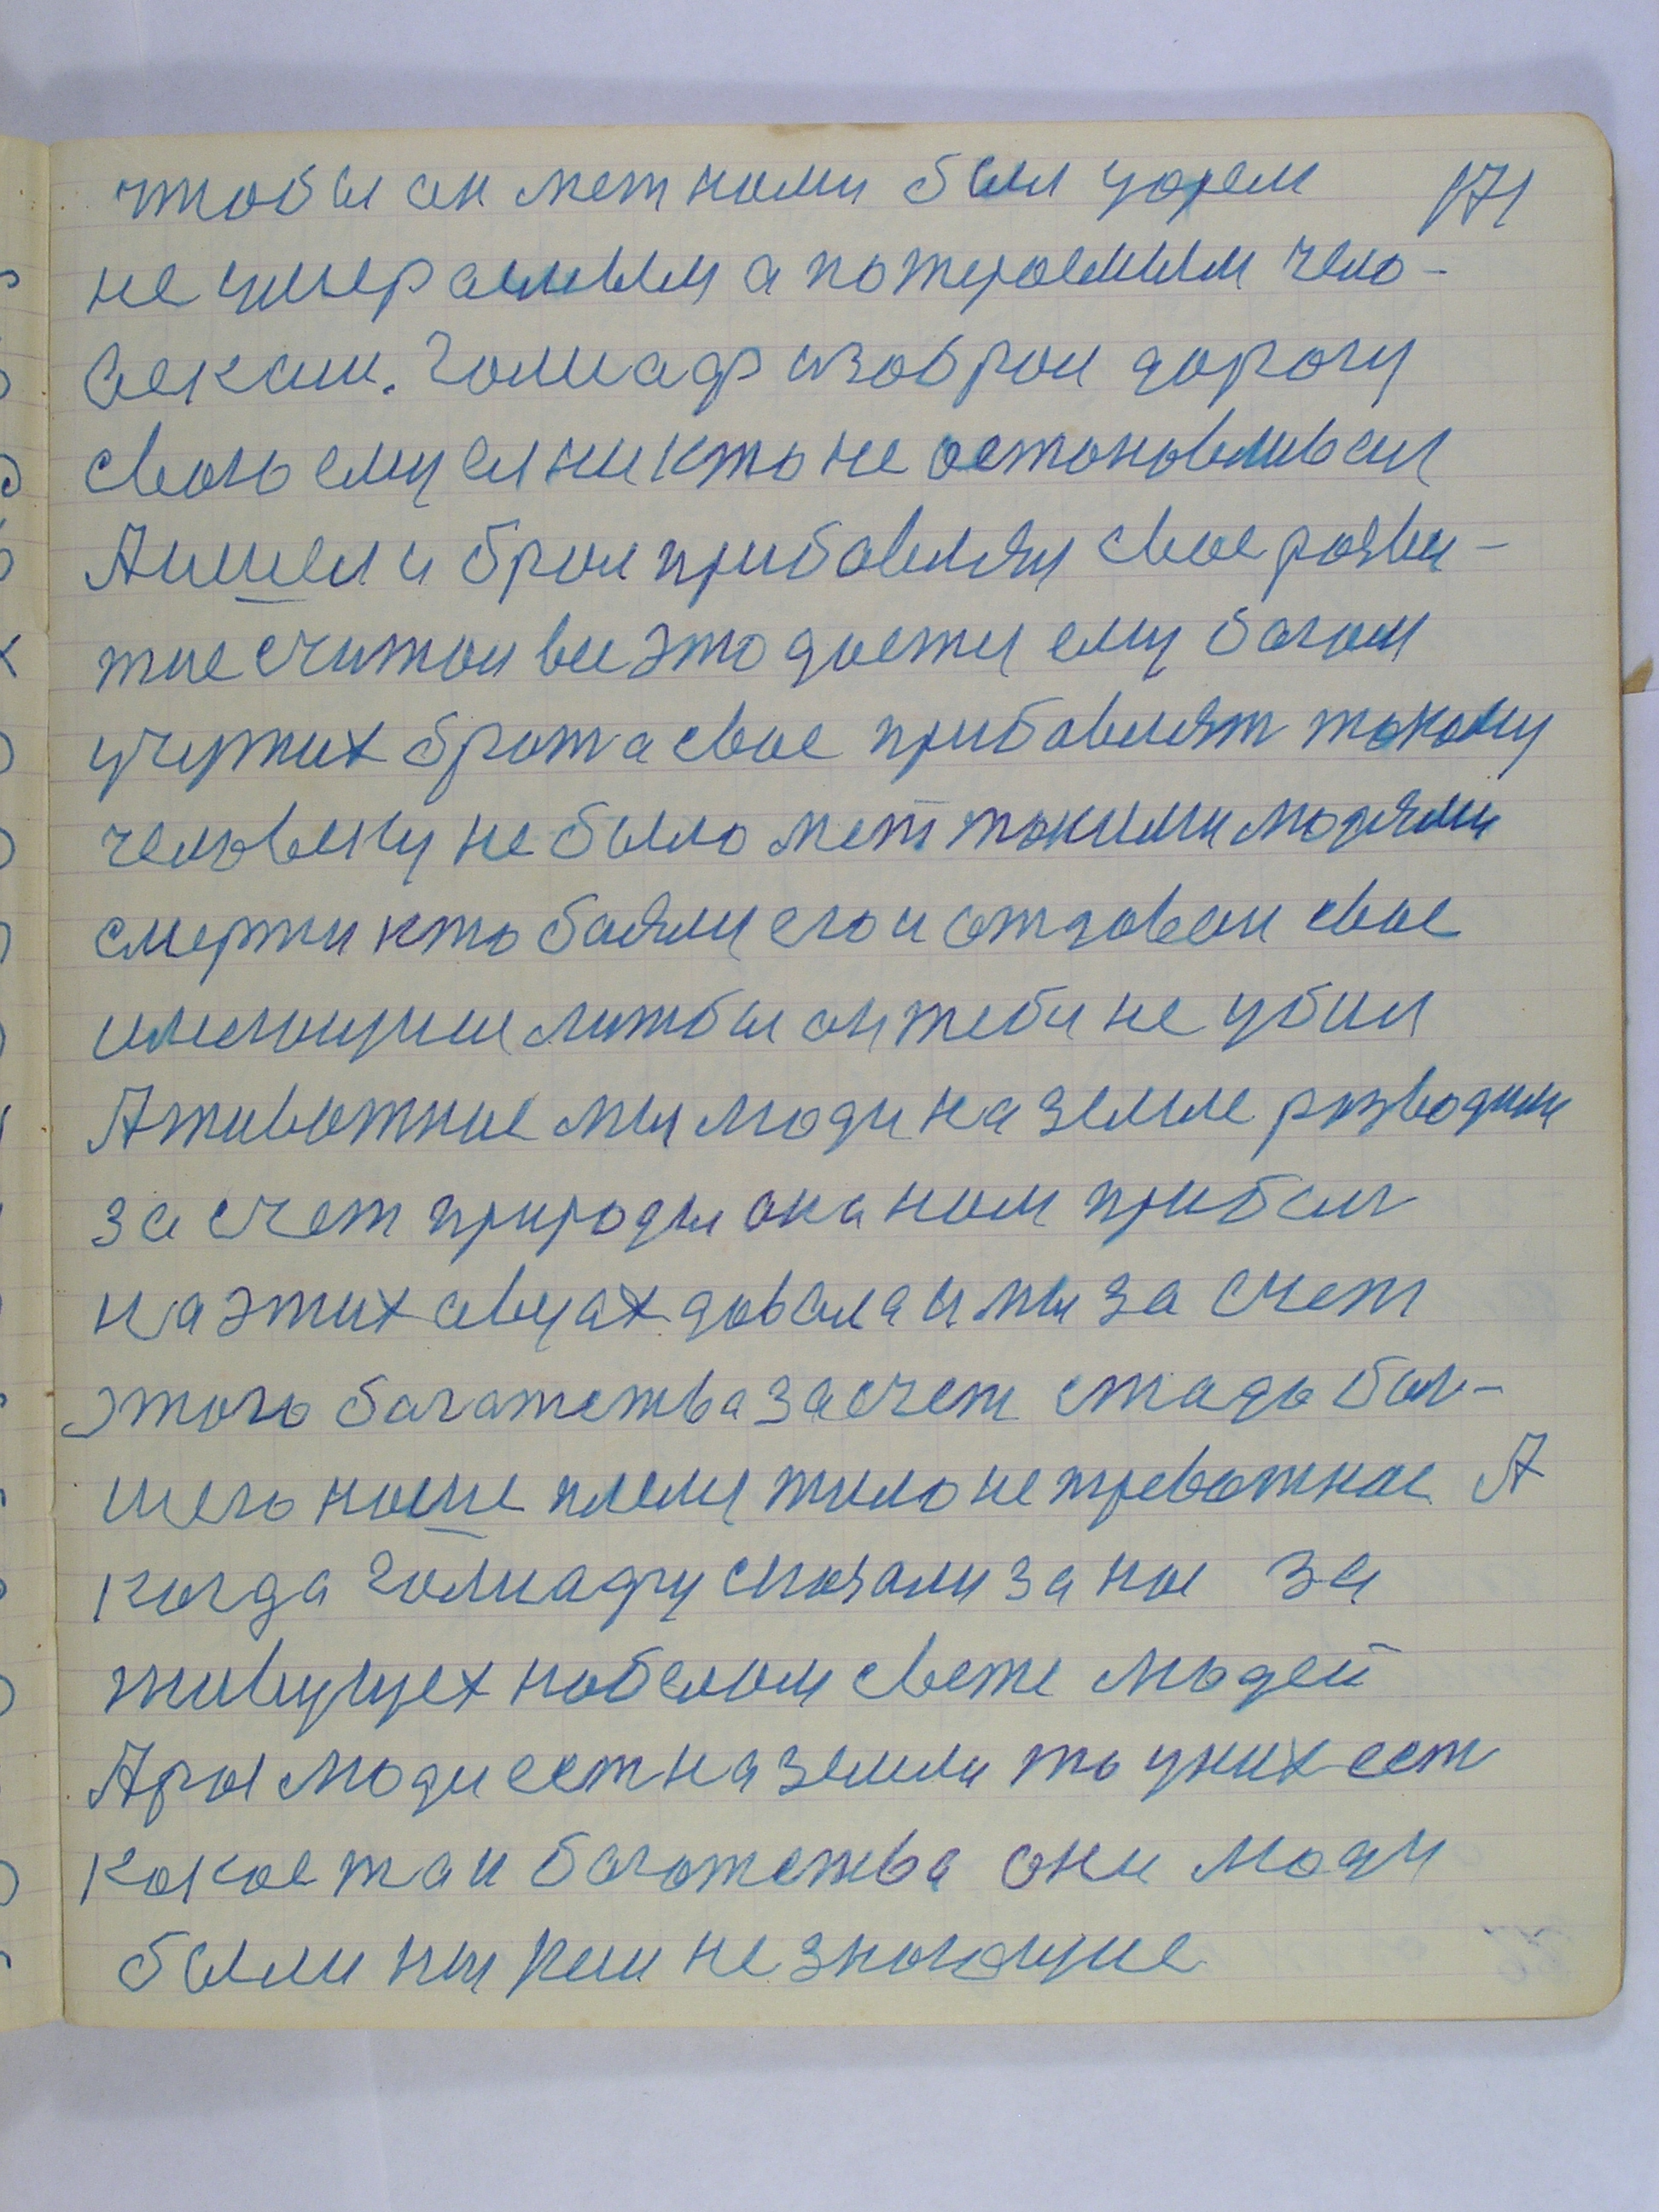 чтобы он меж нами был царем 171
не умераемым а пожираемым чело-
веким. Голиаф избрал дорогу
своюь ему ея никто не остоновливал
А ишел и брал прибавлял свое разви-
тие считал все это даети ему богом
учужих брат а свое прибавлят токому
человеку не было меж токими людями
смерти кто баяли его и отдовали свое
имеющиеи литбы он теби не убил
А животние мы люди на земле розводили
за счет природы она нам прибыл
на этих овцах довала и мы за счет
этого богатетва за счет стада бол-
шего наше племя жило не тревожное А
когда Голиафу сказали за нас за
живущуех на белом свете людей
А раз люди ест на земли то у них ест
какое та и богатетва они люди
были ны не знающие